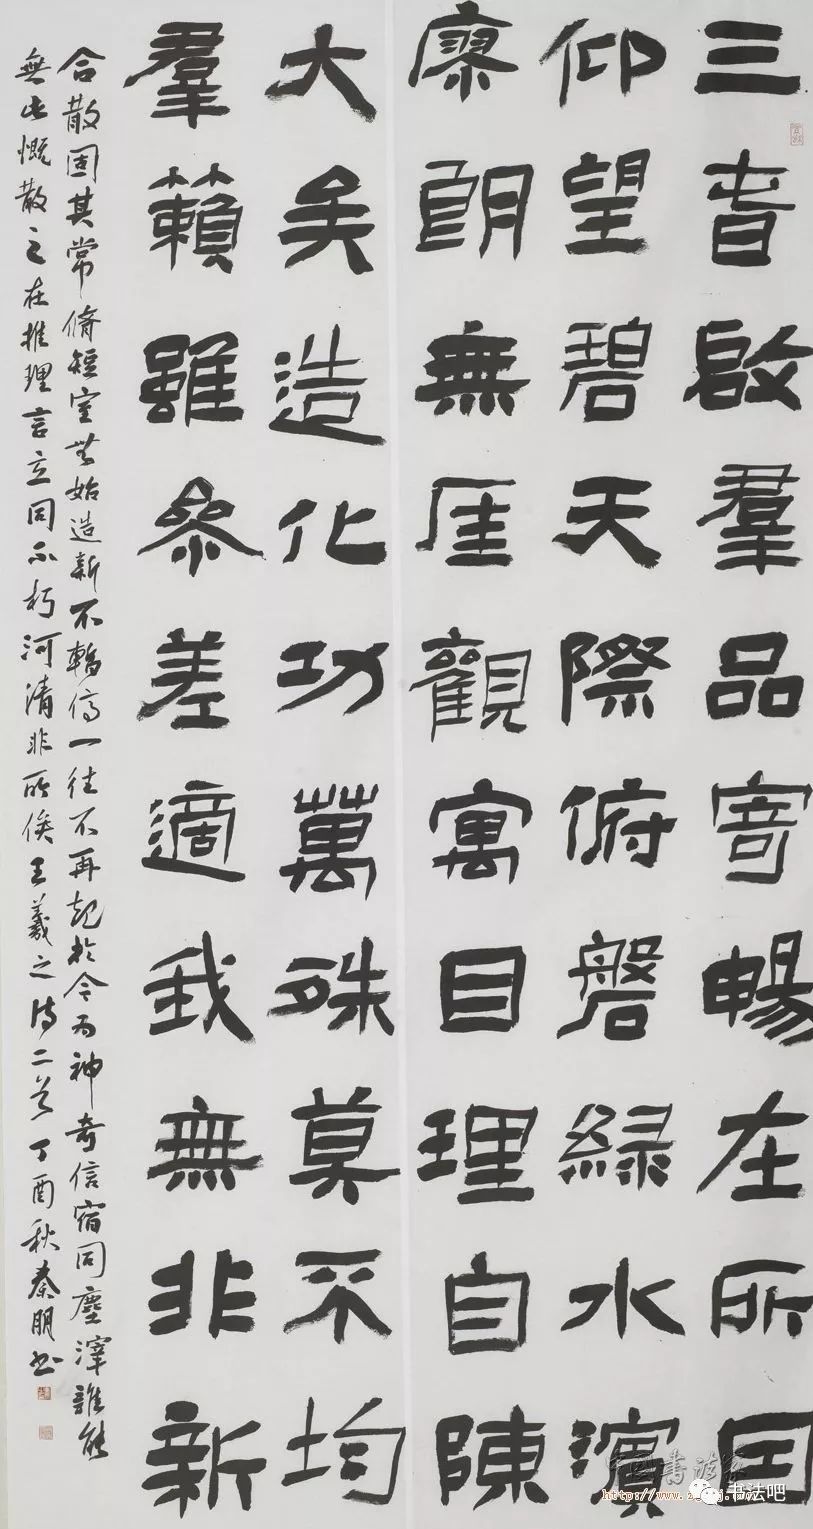 三旾啟羣品寄暢在所因
仰望碧天際俯磐緑水濱
廖朗無厓觀寓目理自陳
大矣造化功萬殊莫不均
羣籟雖参差適我無非新
合散固其常脩短定無始造新不暫停一往不再起於今为神奇信宿同塵滓誰能
無此慨散之在推理言立同不朽河清非所俟王羲之诗二首丁酉秋秦朋书
书法吧